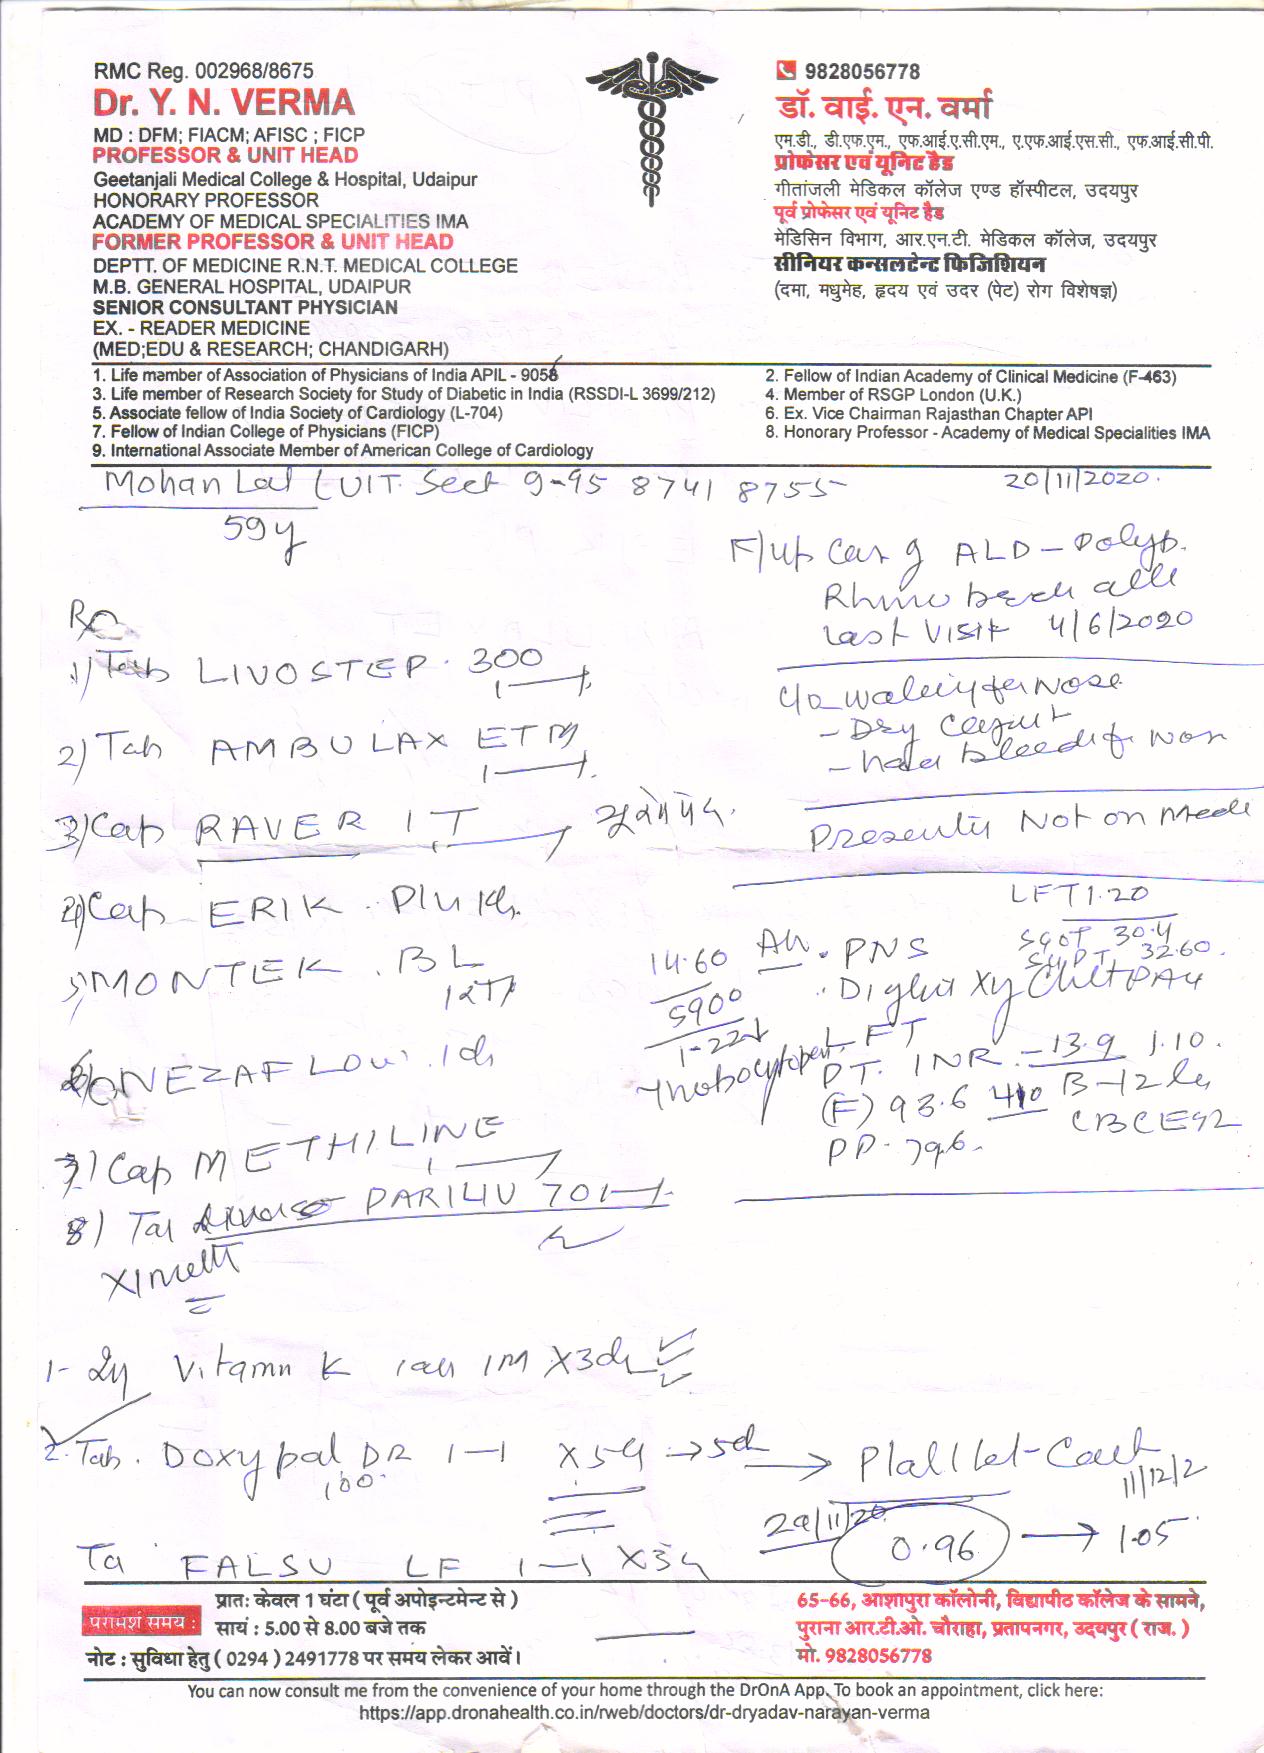 RMC Reg. 002968/8675
Dr. Y. N. VERMA
MD : DFM; FIACM; AFISC ; FICP
PROFESSOR & UNIT HEAD
Geetanjali Medical College & Hospital, Udaipur
HONORARY PROFESSOR
ACADEMY OF MEDICAL SPECIALITIES IMA
FORMER PROFESSOR & UNIT HEAD
DEPTT. OF MEDICINE R.N.T. MEDICAL COLLEGE
M.B. GENERAL HOSPITAL, UDAIPUR
SENIOR CONSULTANT PHYSICIAN
EX. - READER MEDICINE
(MED;EDU & RESEARCH; CHANDIGARH)
9828056778
डॉ. वाई. एन. वर्मा
एम.डी., डी.एफ.एम., एफ.आई.ए.सी.एम., ए.एफ.आई.एस.सी., एफ.आई.सी.पी.
प्रोफेसर एवं यूनिट हैड
गीतांजली मेडिकल कॉलेज एण्ड हॉस्पीटल, उदयपुर
पूर्व प्रोफेसर एवं यूनिट हैड
मेडिसिन विभाग, आर.एन.टी. मेडिकल कॉलेज, उदयपुर
सीनियर कन्सलटेन्ट फिजिशियन
(दमा, मधुमेह, हृदय एवं उदर (पेट) रोग विशेषज्ञ)
1. Life member of Association of Physicians of India APIL - 9058
2. Fellow of Indian Academy of Clinical Medicine (F-463)
3. Life member of Research Society for Study of Diabetic in India (RSSDI-L 3699/212)
4. Member of RSGP London (U.K.)
5. Associate fellow of India Society of Cardiology (L-704)
6. Ex. Vice Chairman Rajasthan Chapter API
7. Fellow of Indian College of Physicians (FICP)
8. Honorary Professor - Academy of Medical Specialities IMA
9. International Associate Member of American College of Cardiology
Mohan Lal (UIT. Sect 9-95 87418755 20/11/2020.
59y
F/up Cas g ALD - Polyp.
Last Visit 4/6/2020
Rx
1) Tab LIVOSTEP. 300
c/o Nose
- Dry
2) Tab AMBULAX ETM
3) Cap RAVER IT
Presently Not on Medi
4) Cap ERIK. Plus
LFT 1.20
SGOT 30.4
SGPT 32.60
14.60 Adv. PNS
5900
1.22
5) MONTEK. BL
Digital Xy Chest PA
LFT
6) NEZAFLOW.
PT. INR - 13.9 1.10.
(F) 93.6 B-12
CBC ESR
PP. 79.6
7) Cap METHILINE
8) Tab PARILIV 70
1- Inj Vitamn K IM X3d
2. Tab. Doxypal DR 1-1 X5d → 5d → Platllet-Cout
100.
11/12/2
29/11/20
0.96 → 1.05
Ta FALSU LF 1-1 X3d
परामर्श समय :
प्रात: केवल 1 घंटा ( पूर्व अपोइन्टमेन्ट से )
सायं : 5.00 से 8.00 बजे तक
नोट : सुविधा हेतु ( 0294 ) 2491778 पर समय लेकर आवें।
65-66, आशापुरा कॉलोनी, विद्यापीठ कॉलेज के सामने,
पुराना आर.टी.ओ. चौराहा, प्रतापनगर, उदयपुर ( राज. )
मो. 9828056778
You can now consult me from the convenience of your home through the DrOnA App. To book an appointment, click here:
https://app.dronahealth.co.in/rweb/doctors/dr-dryadav-narayan-verma